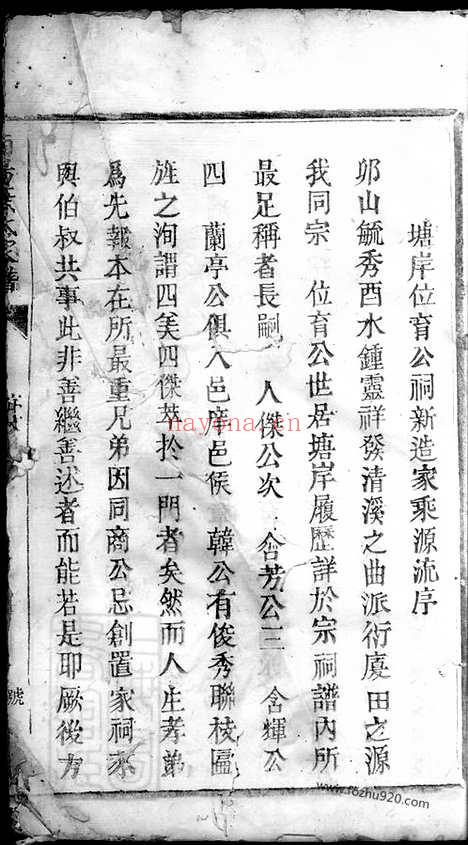 塘岸位育公祠新造家乘源流序
卯山毓秀酉水鍾靈祥發清溪之曲派衍廈田之源
我同宗　位育公世居塘岸履歷詳於宗祠譜內所
最足稱者長嗣　人傑公次　含芳公三　含輝公
四　蘭亭公俱入邑庠邑侯　韓公有俊秀聯枝匾
旌之洵謂四美四傑萃於一門者矣然而人生孝弟
為先報本在所最重兄弟因同商公忌創置家祠
與伯叔共事此非善繼善述者而能若是耶厥後方
氏家譜
號
nayona.cn
www.fozhu920.com